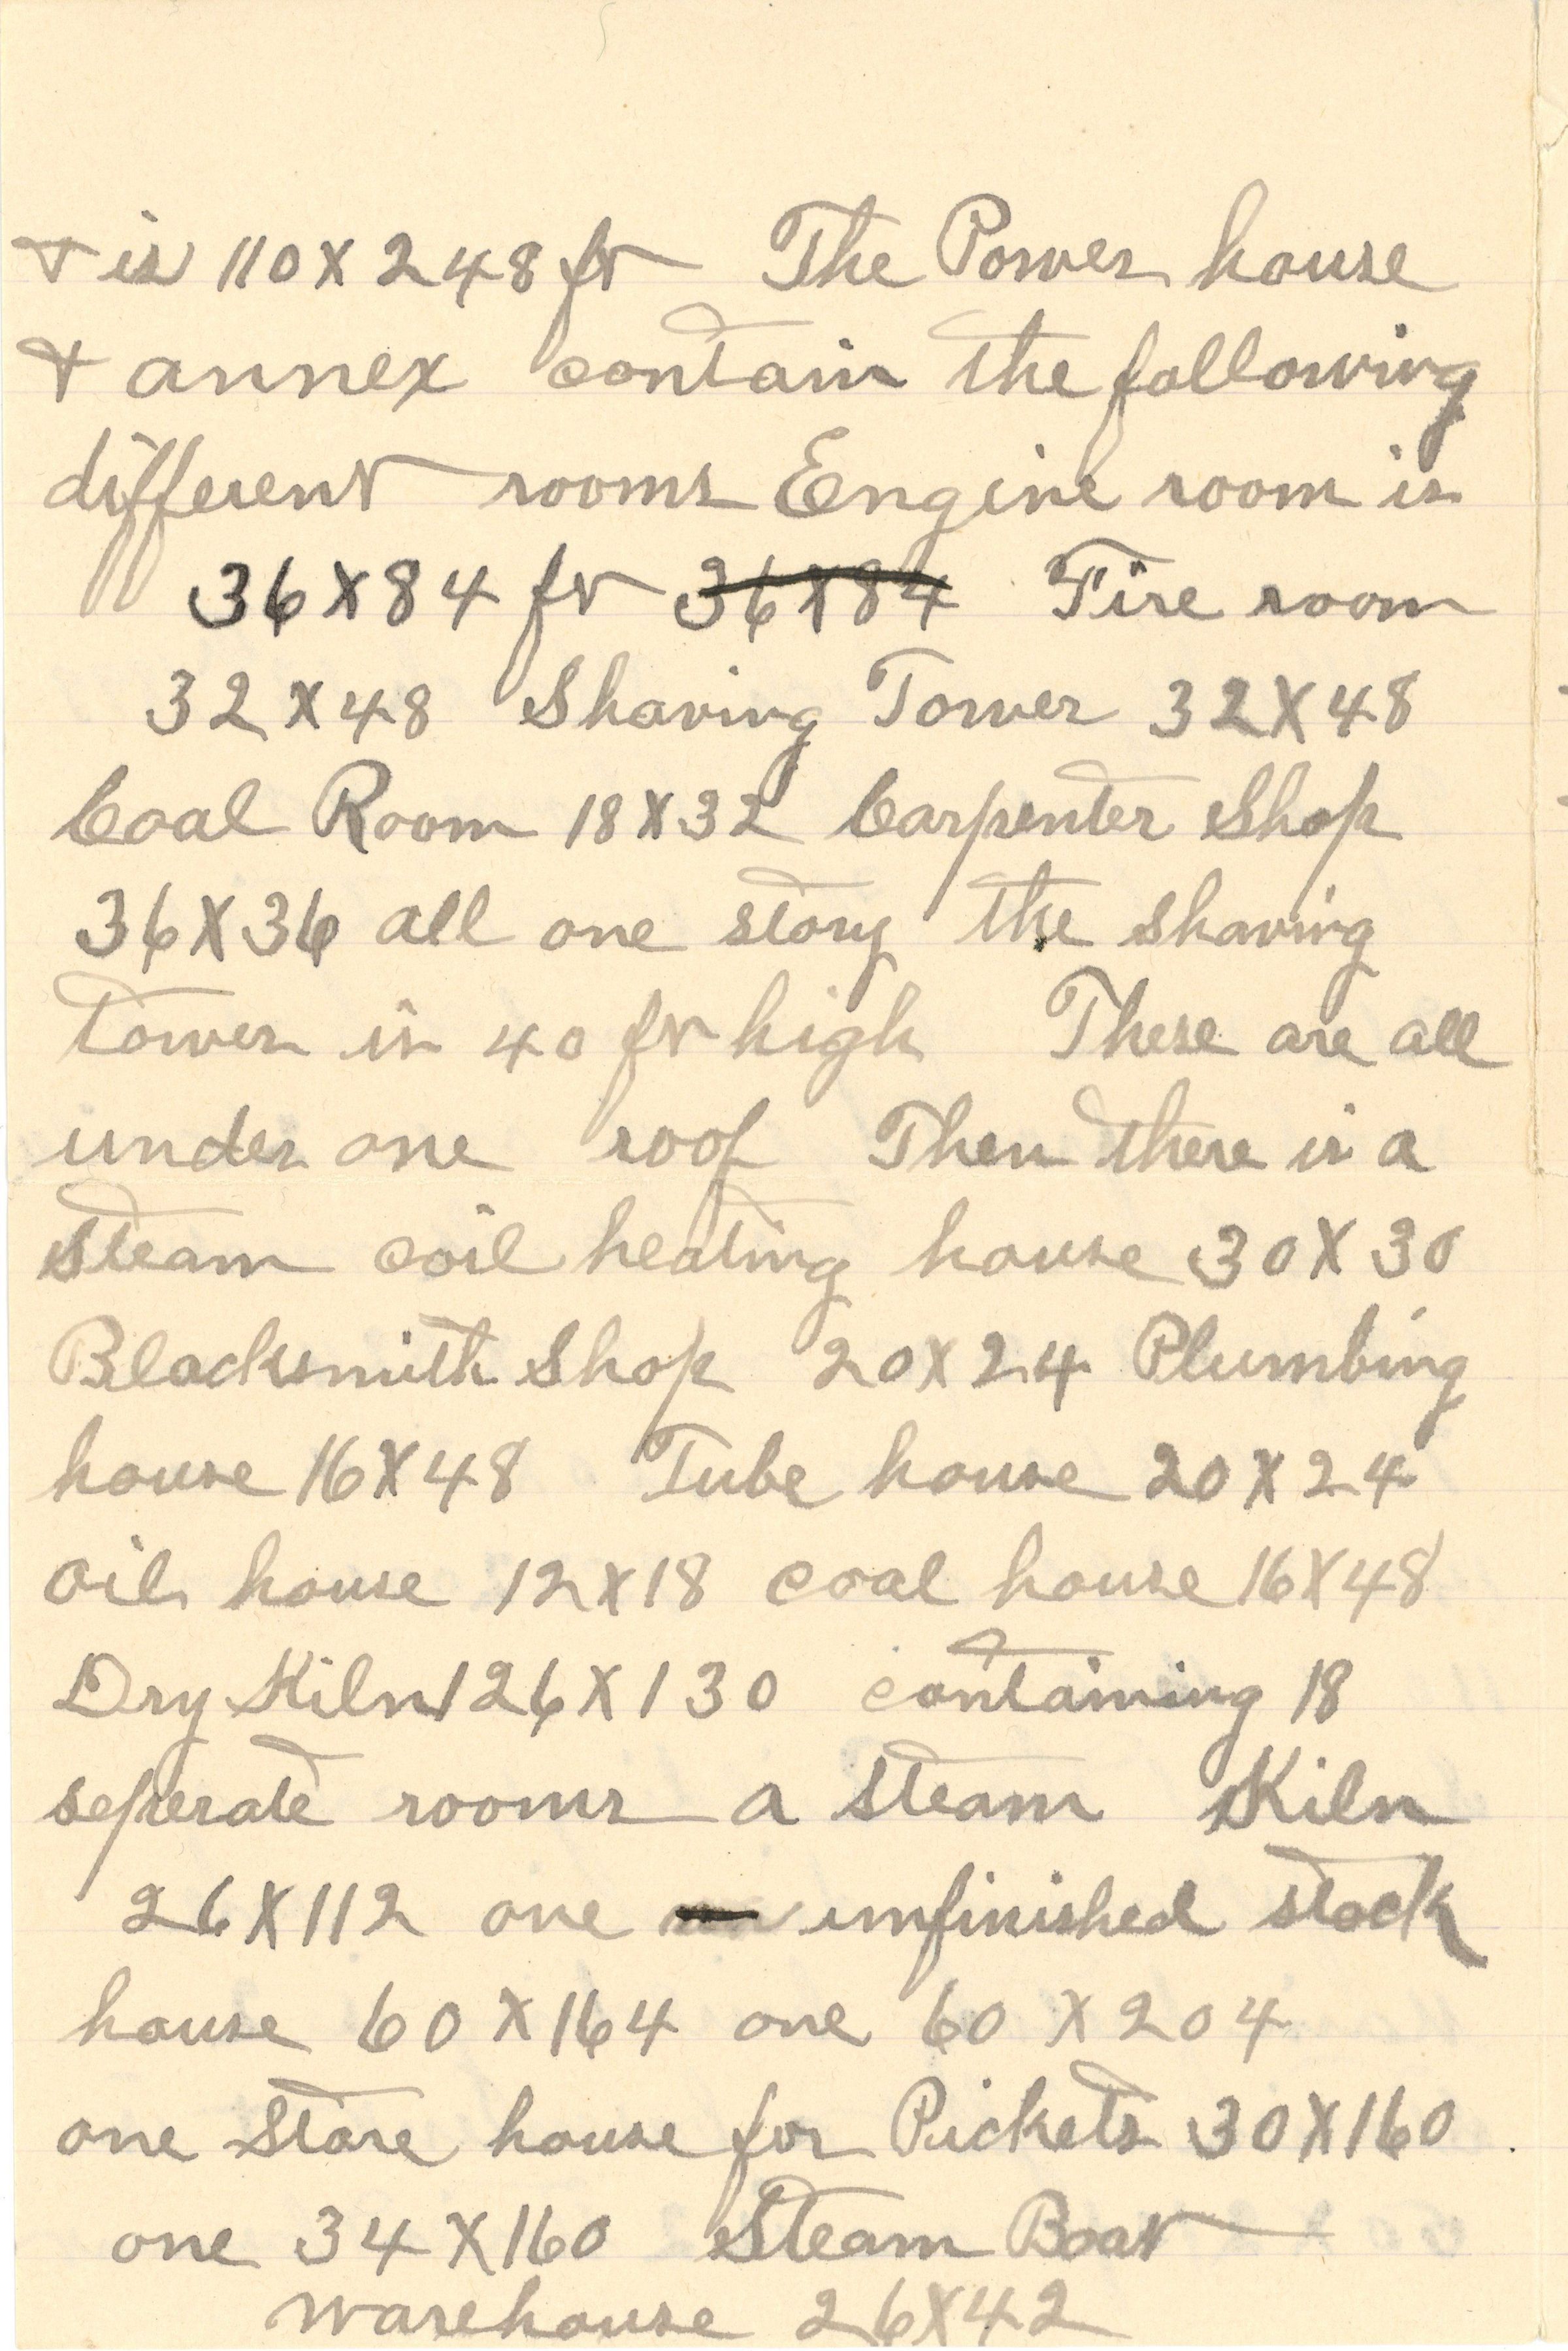 & is 110 X 248 ft The Power house
& annex contain the following
different rooms Engine room is
36 X 84 ft 36 X 84 Fire room
32 X 48 Shaving Tower 32 X 48
Coal Room 18 X 32 Carpenter Shop
36 X 36 all one story the shaving
tower is 40 ft high These are all
under one roof Then there is a
steam coil heating house 30 X 30
Blacksmith Shop 20 X 24 Plumbing
house 16 X 48 Tube house 20 X 24
oil house 12 X 18 coal house 16 X 48
Dry Kiln 126 X 130 containing 18
seperate rooms a steam Kiln
26 X 112 one unfinished stock
house 60 X 164 one 60 X 204
one Store house for Pickets 30 X 160
one 34 X 160 Steam Boat
warehouse 26 X 42